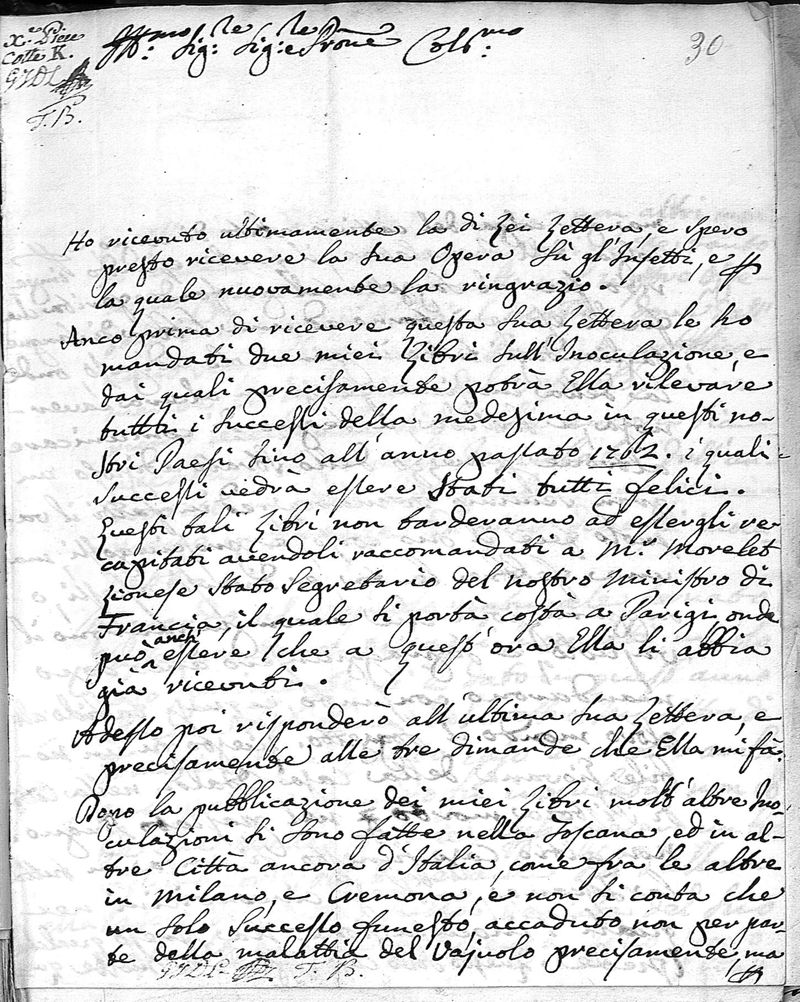 Xe Piece
Cotte K.
G J D L
T. B.
Ill:mo Sig: Sig:e Prone Col:mo
30
Ho ricevuto ultimamente la di Lei Lettera, e spero
presto ricevere la sua Opera sù gl'Insetti, e
la quale nuovamente la ringrazio.
Anco prima di ricevere questa sua Lettera le ho
mandati due miei Libri sull'Inoculazione, e
dai quali precisamente potrà Ella rilevare
tutti i successi della medesima in questi no-
stri Paesi sino all'anno passato 1762. i quali
successi vedrà essere stati tutti felici.
Questi tali Libri non tarderanno ad essergli re
capitati avendoli raccomandati a M.r Morelet
Lionese stato Segretario del nostro Ministro di
Francia, il quale si portà costà a Parigi, onde
può anch' essere che a quest'ora Ella li abbia
già ricevuti.
Adesso poi risponderò all'ultima sua Lettera, e
precisamente alle tre dimande che Ella mi fà.
Dopo la pubblicazione dei miei Libri molt'altre Ino-
culazioni si sono fatte nella Toscana, ed in al-
tre Città ancora d'Italia, come fra le altre
in Milano, e Cremona, e non si conta che
un solo successo funesto, accaduto non per par-
te della malattia del Vajuolo precisamente, ma
G J D L T. B.